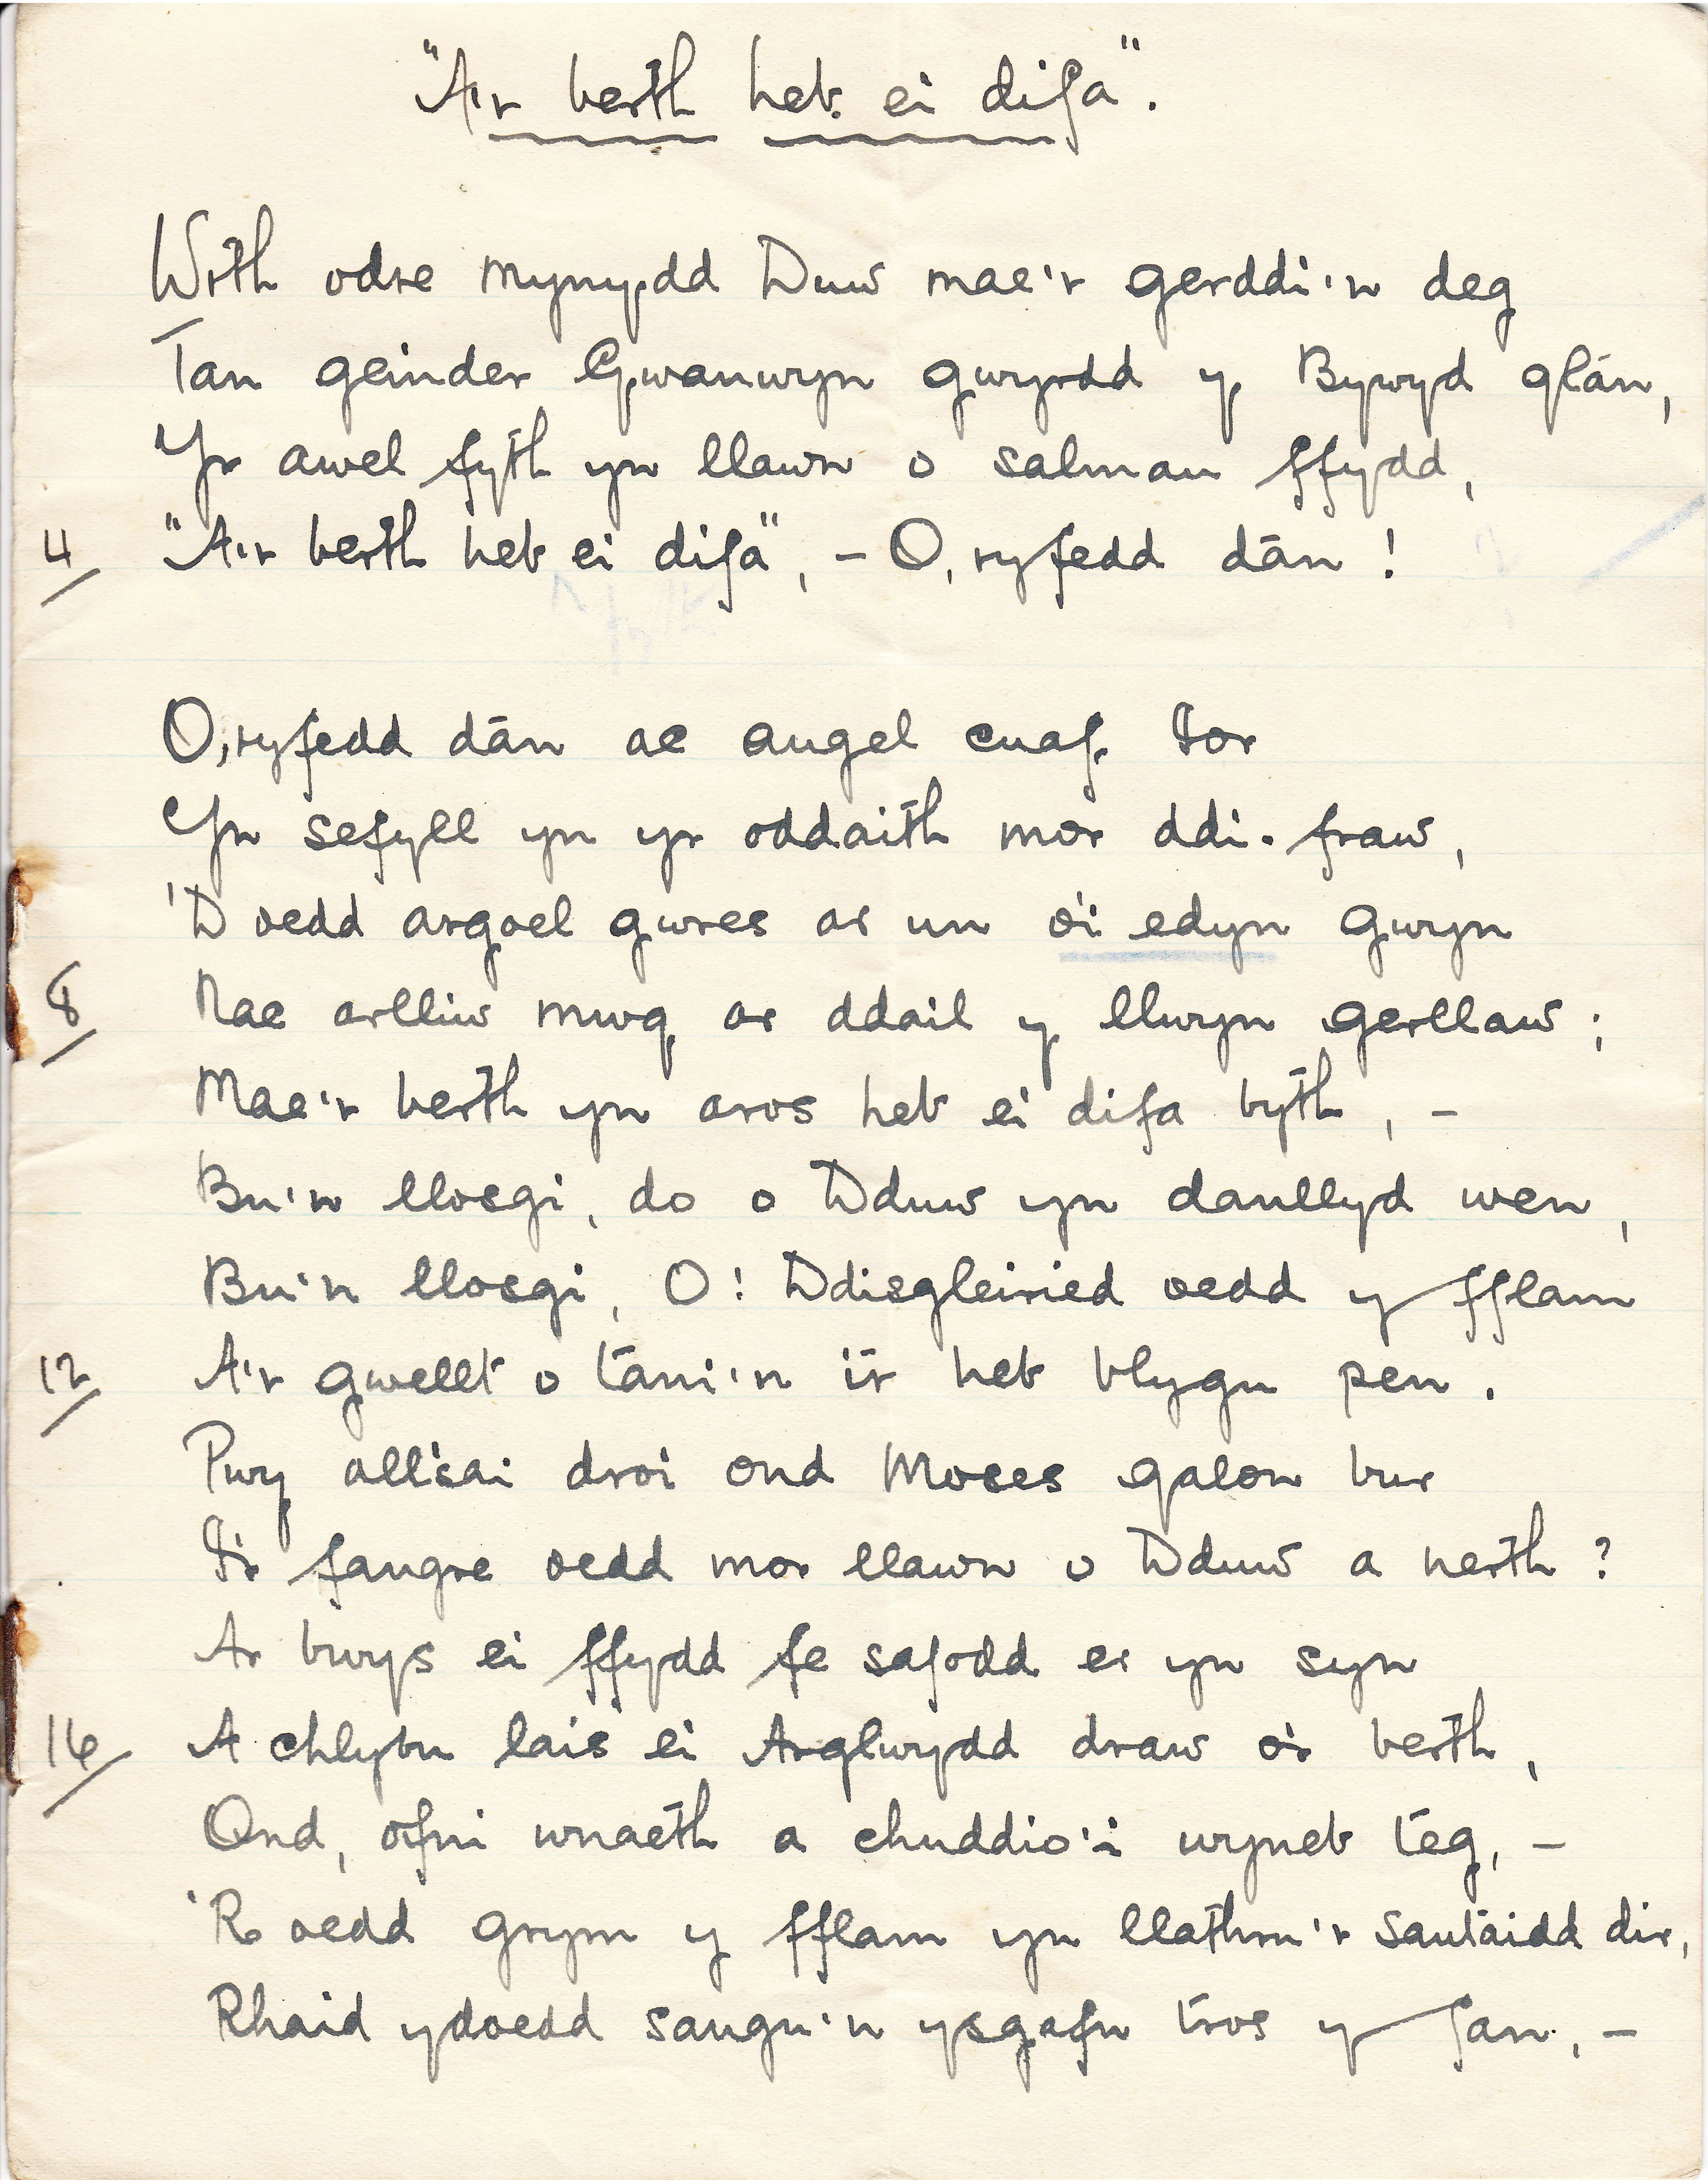 "A'r berth heb ei difa".
Wrth odre mynydd Duw mae'r gerddi'n deg
Tan geinder Gwanwyn gwyrdd y Bywyd glân,
Yr awel fyth yn llawn o salmau ffydd,
4 "A'r berth heb ei difa", – O, ryfedd dân!
O, ryfedd dân ac angel cuaf Iôr
Yn sefyll yn yr oddaith mor ddi-fraw,
'D oedd argoel gwres ar un o'i edyn gwyn
8 Nac arlliw mwg ar ddail y llwyn gerllaw;
Mae'r berth yn aros heb ei difa byth, –
Bu'n llosgi, do o Dduw yn danllyd wen,
Bu'n llosgi, O! Ddisgleiried oedd y fflam
12 A'r gwellt o tani'n îr heb blygu pen.
Pwy all'sai droi ond Moses galon bur
I'r fangre oedd mor llawn o Dduw a nerth?
Ar bwys ei ffydd fe safodd er yn syn
16 A chlybu lais ei Arglwydd draw o'r berth,
Ond, ofni wnaeth a chuddio'i wyneb teg, –
'R oedd grym y fflam yn llathru'r santaidd dir,
Rhaid ydoedd sangu'n ysgafn tros y fan, –